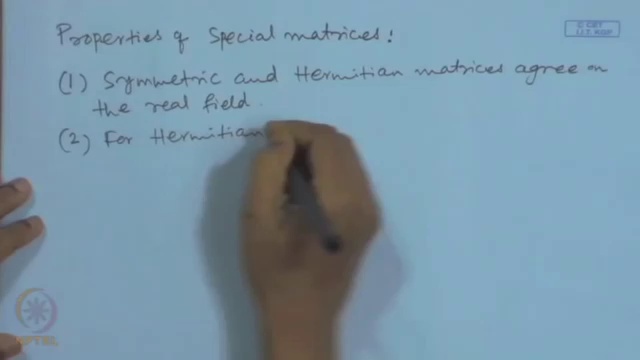 Properties of Special matrices:
(1) Symmetric and Hermitian matrices agree on
the real field.
(2) For Hermitian
© CET
I.I.T. KGP
NPTEL